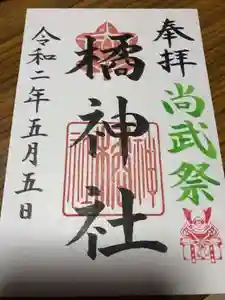 奉拝
尚武祭
橘神社
令和二年五月五日